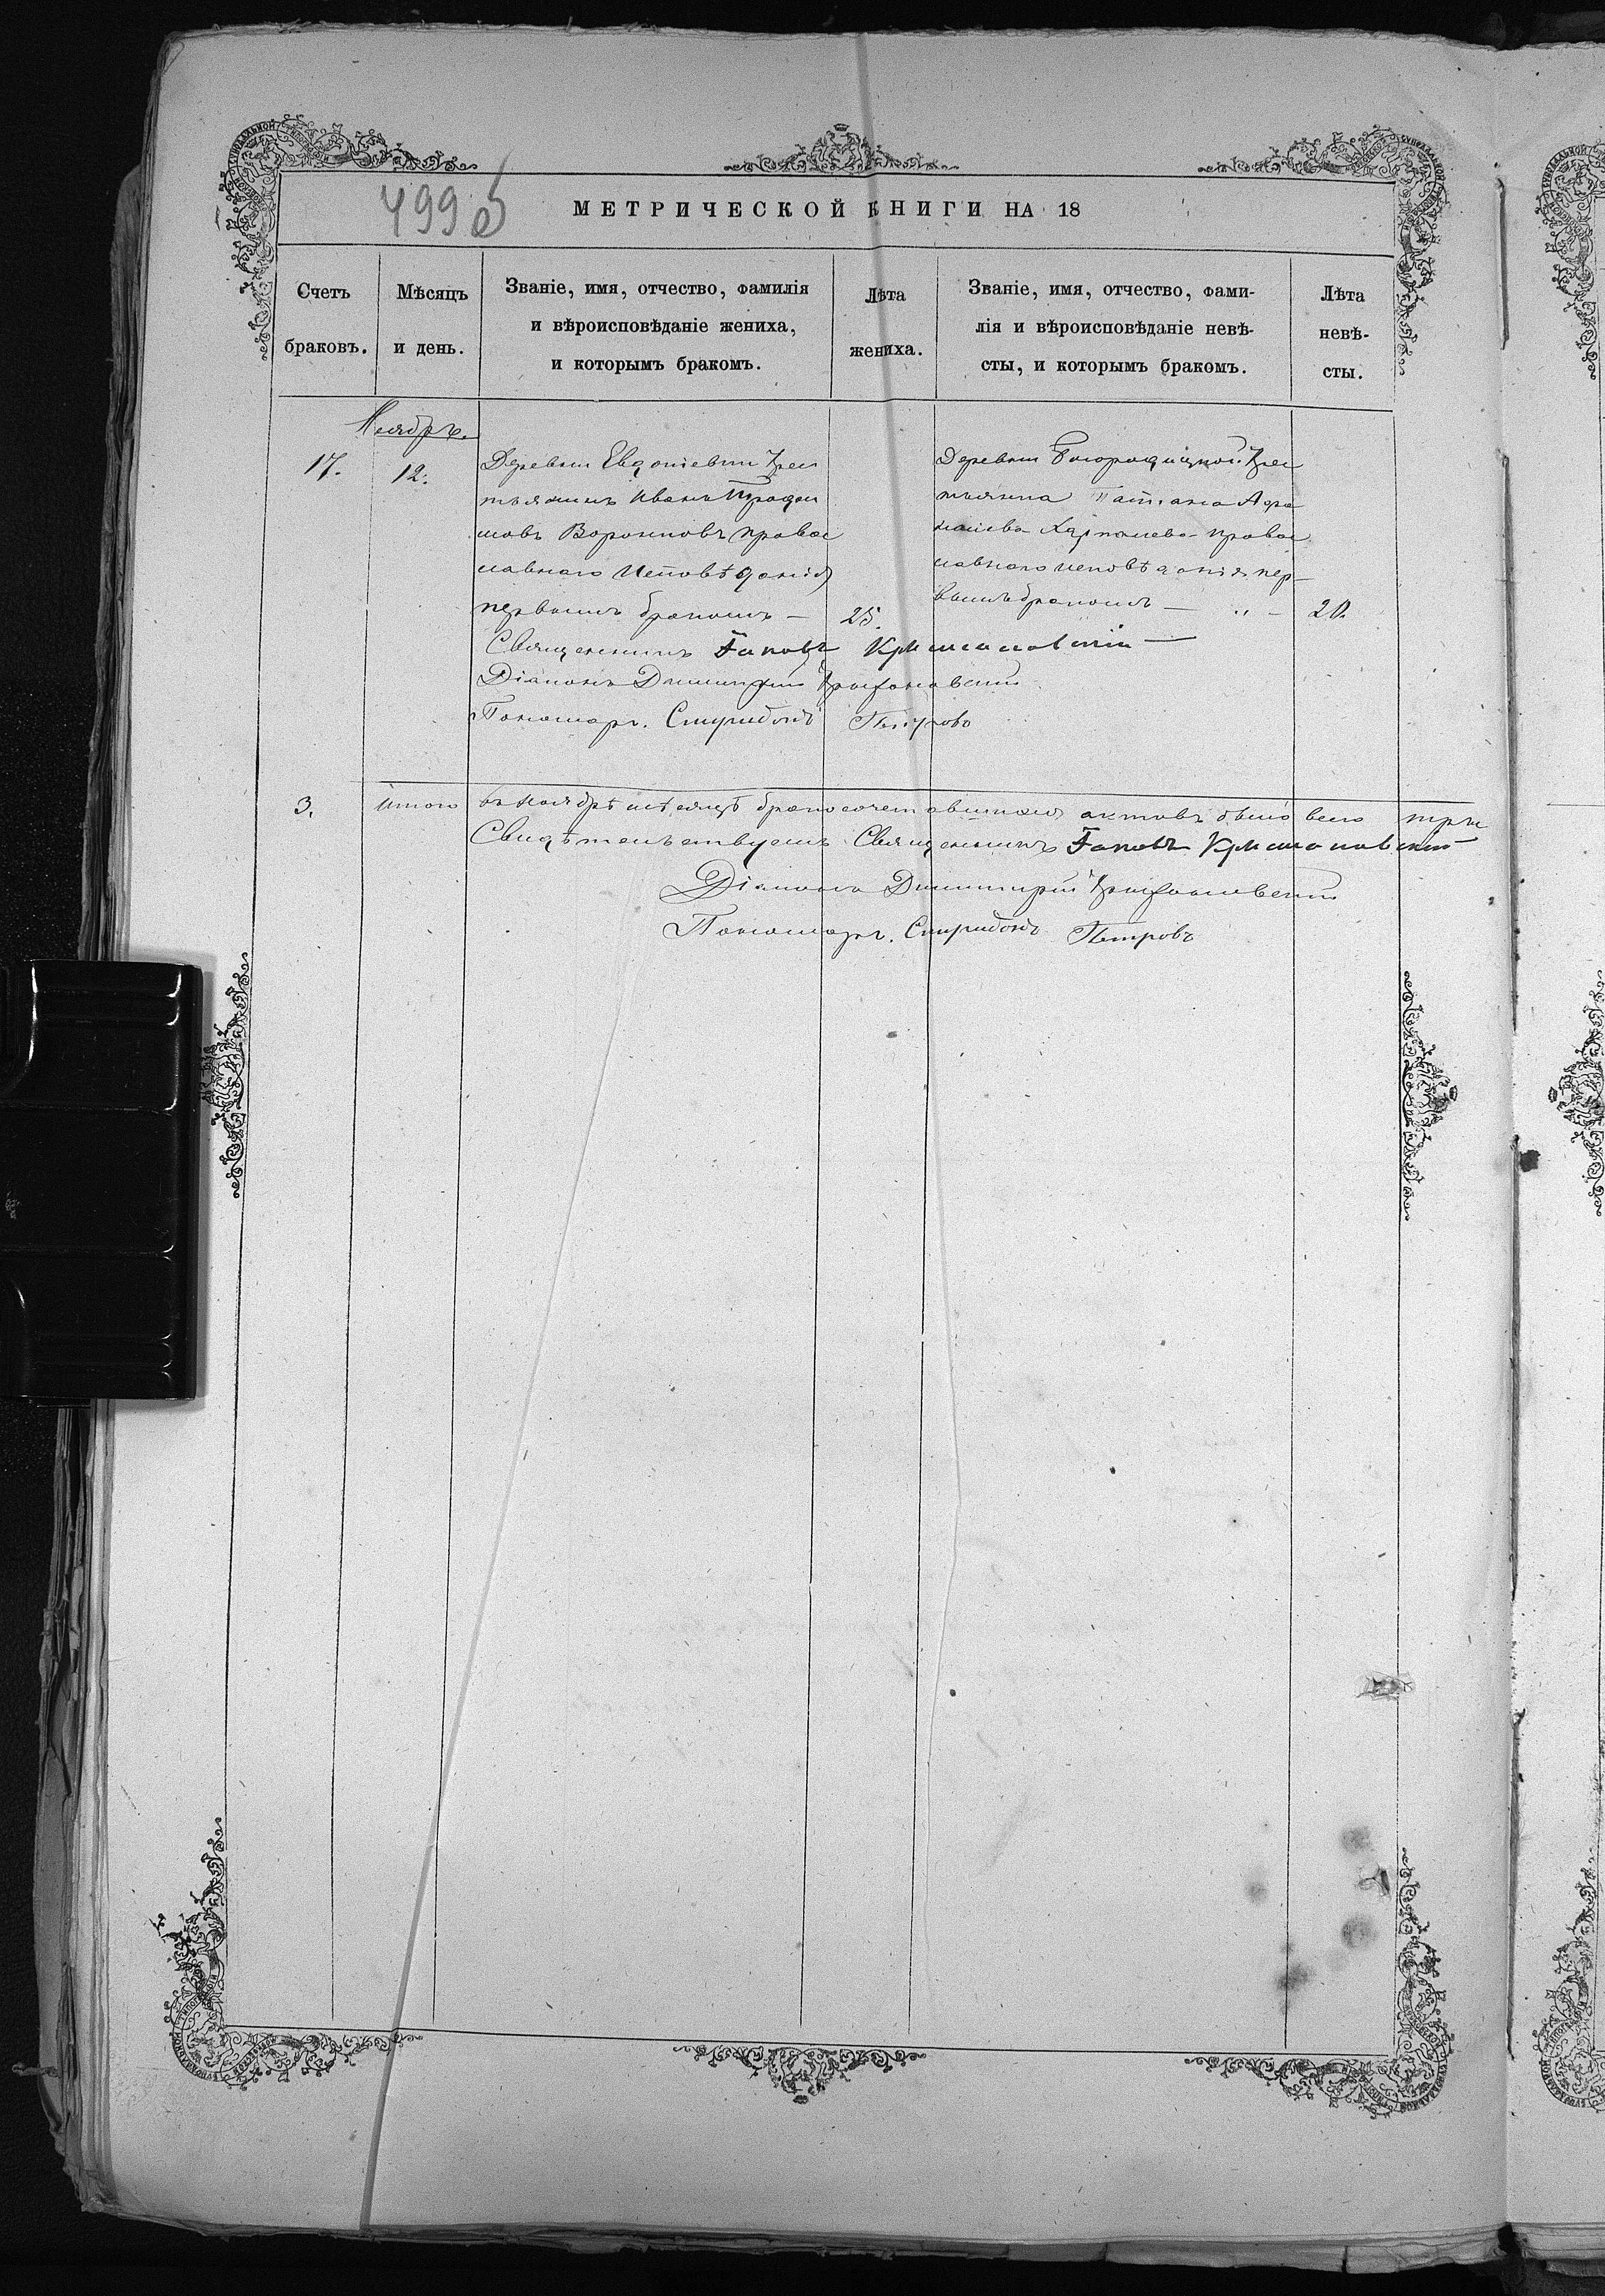 499об
МЕТРИЧЕСКОЙ КНИГИ НА 18
Счетъ браковъ.
Мѣсяцъ и день.
Званіе, имя, отчество, фамилія
и вѣроисповѣданіе жениха,
и которымъ бракомъ.
Лѣта жениха.
Званіе, имя, отчество, фами-
лія и вѣроисповѣданіе невѣ-
сты, и которымъ бракомъ.
Лѣта невѣ-
сты.
Ноябрь.
17.
12.
Деревни Евдокіевки Крес
тьянинъ Иванъ
Воронковъ правос
лавнаго Исповѣданія
первымъ бракомъ —
25.
Деревни Богородицкой Крес
тьянка Татіана Афа
насіева правос
лавнаго исповѣданія пер-
вымъ бракомъ —
20.
Священникъ Іаковъ Крыжановскій —
Діаконъ Димитрій
Пономарь. Спиридонъ Петровъ
3.
Итого въ Ноябрѣ мѣсяцѣ бракосочетавшихся актовъ было всего три
Свидѣтельствуемъ Священникъ Іаковъ Крыжановскій
Діаконъ Димитрій
Пономарь. Спиридонъ Петровъ